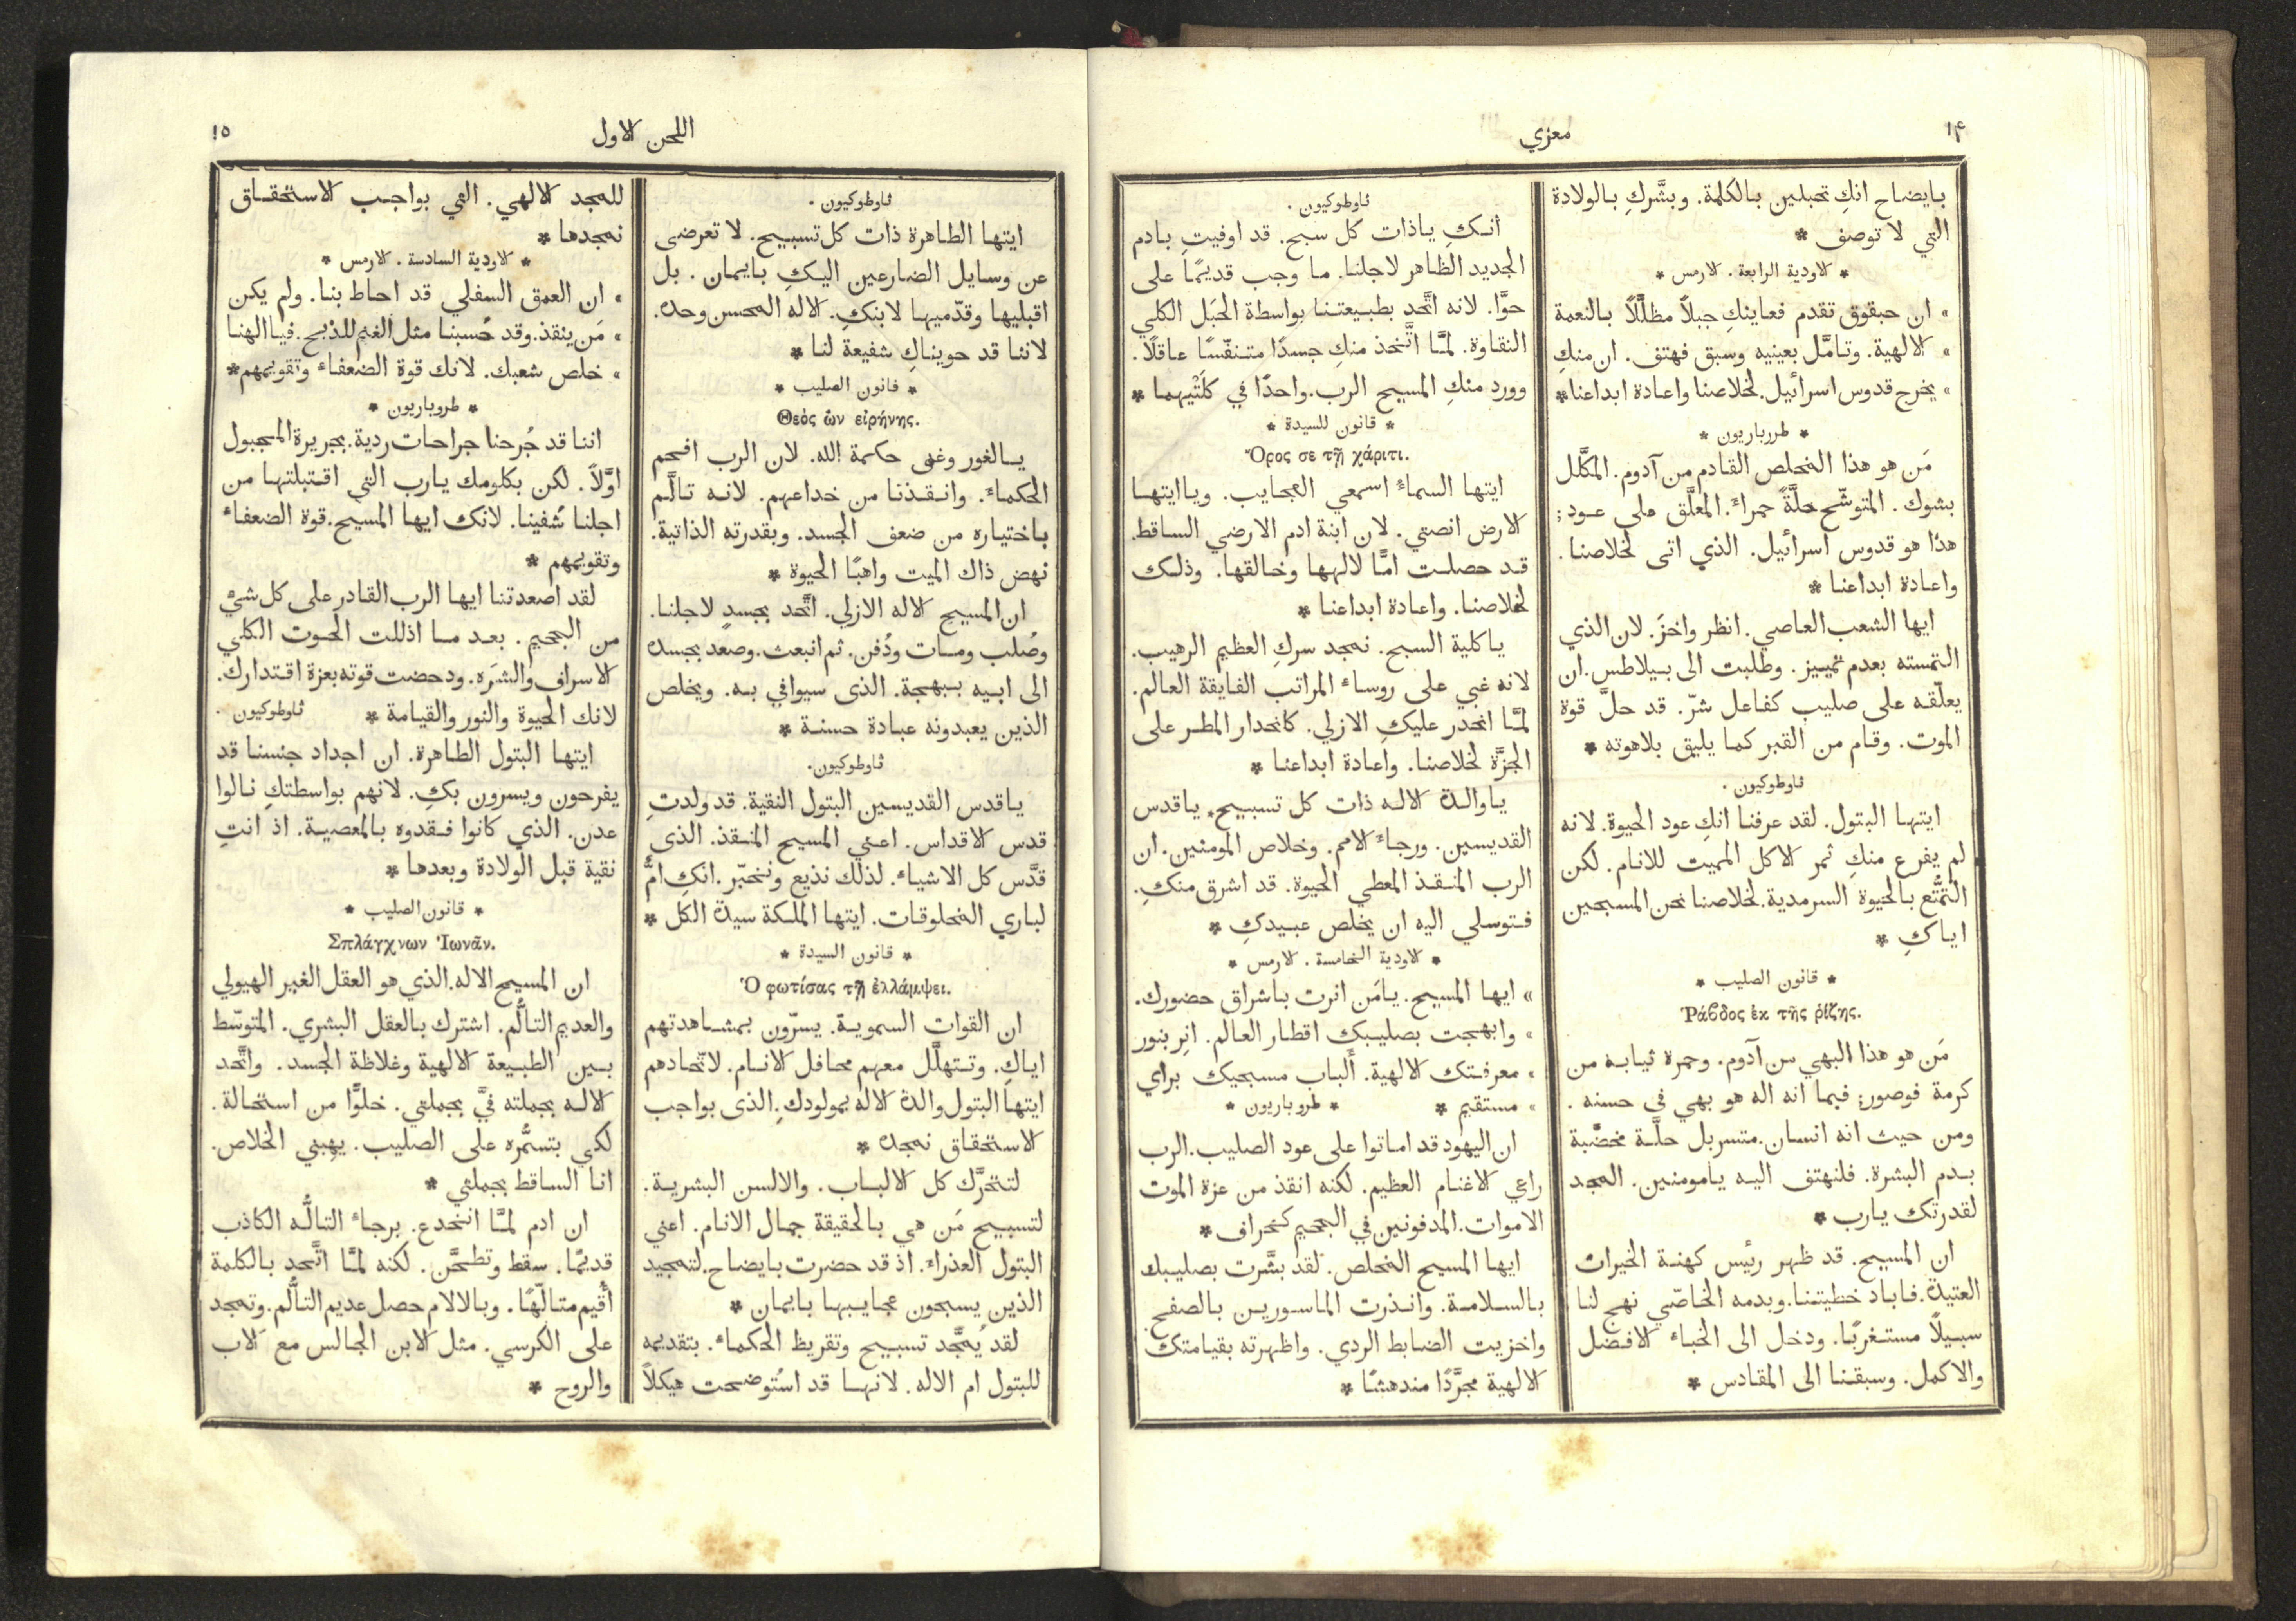 ١٤
معزي
بايضاح انكِ تحبلين بالكلمة. وبشَّركِ بالولادة
التي لا توصف *
* الاودية الرابعة. الارمس *
» ان حبقوق تقدم فعاينكِ جبلاً مظلَّلاً بالنعمة
» الالهية. وتامَّل بعينيه وسبق فهتف. ان منكِ
» يخرج قدوس اسرائيل. لخلاصنا واعادة ابداعنا *
* طروباريون *
مَن هو هذا المخلص القادم من آدوم. المكَّلل
بشوك. المتوشّح حلَّةً حمراء. المعلَّق على عود؛
هذا هو قدوس اسرائيل. الذي اتى لخلاصنا.
واعادة ابداعنا *
ايها الشعب العاصي. انظر واخزَ. لان الذي
التمسته بعدم تمييز. وطلبت الى بيلاطس. ان
يعلّقه على صليب كفاعل شرّ. قد حلَّ قوة
الموت. وقام من القبر كما يليق بلاهوته *
ثاوطوكيون.
ايتها البتول. لقد عرفنا انكِ عود الحيوة. لانه
لم يفرع منكِ ثمر الاكل المميت للانام. لكن
التمتُّع بالحيوة السرمدية. لخلاصنا نحن المسبحين
اياكِ *
* قانون الصليب *
Ῥάβδος ἐκ τῆς ῥίζης.
مَن هو هذا البهي من آدوم. وحمرة ثيابه من
كرمة فوصور؛ فبما انه اله هو بهي في حسنه.
ومن حيث انه انسان. متسربل حلَّة مخضَّبة
بدم البشرة. فلنهتف اليه يا مومنين. المجد
لقدرتك يارب *
ان المسيح. قد ظهر رئيس كهنة الخيرات
العتيدة. فاباد خطيتنا. وبدمه الخاصّي نهج لنا
سبيلاً مستغربًا. ودخل الى الخباء الافضل
والاكمل. وسبقنا الى المقادس *
ثاوطوكيون.
انكِ ياذات كل سبح. قد اوفيتِ بادم
الجديد الظاهر لاجلنا. ما وجب قديمًا على
حوَّا. لانه اتَّحد بطبيعتنا بواسطة الحَبَل الكلي
النقاوة. لمَّا اتَّخذ منكِ جسدًا متنفّسًا عاقلاً.
وورد منكِ المسيح الرب. واحدًا في كلَتْيهما *
* قانون للسيدة *
Ὄρος σε τῇ χάριτι.
ايتها السماء اسمعي العجايب. ويا ايتها
الارض انصتي. لان ابنة ادم الارضي الساقط.
قد حصلت امًّا لالهها وخالقها. وذلك
لخلاصنا. واعادة ابداعنا *
يا كلية السبح. نمجد سركِ العظيم الرهيب.
لانه غبي على روساء المراتب الفايقة العالم.
لمَّا انحدر عليكِ الازلي. كانحدار المطر على
الجزَّة لخلاصنا. واعادة ابداعنا *
يا والدة الاله ذات كل تسبيح. يا قدس
القديسين. ورجاء الامم. وخلاص المومنين. ان
الرب المنقذ المعطي الحيوة. قد اشرق منكِ.
فتوسلي اليه ان يخلص عبيدكِ *
* الاودية الخامسة. الارمس *
» ايها المسيح. يا مَن انرت باشراق حضورك.
» وابهجت بصليبك اقطار العالم. انِر بنور
» معرفتك الالهية. ألباب مسبحيك براي
» مستقيم * * طروباريون *
ان اليهود قد اماتوا على عود الصليب. الرب
راعي الاغنام العظيم. لكنه انقذ من عزة الموت
الاموات. المدفونين في الجحيم كخراف *
ايها المسيح المخلص. لقد بشَّرت بصليبك
بالسلامة. وانذرت الماسورين بالصفح.
واخزيت الضابط الردي. واظهرته بقيامتك
الالهية مجرَّدًا مندهشًا *
اللحن الاول
١٥
ثاوطوكيون.
ايتها الطاهرة ذات كل تسبيح. لا تعرضى
عن وسايل الضارعين اليكِ بايمان. بل
اقبليها وقدّميها لابنكِ. الاله المحسن وحده.
لاننا قد حويناكِ شفيعة لنا *
* قانون الصليب *
Θεὸς ὢν εἰρήνης.
يالغور وغنى حكمة الله. لان الرب افحم
الحكماء. وانقذنا من خداعهم. لانه تالَّم
باختياره من ضعف الجسد. وبقدرته الذاتية.
نهض ذاك الميت واهبًا الحيوة *
ان المسيح الاله الازلي. اتَّحد بجسدٍ لاجلنا.
وصُلب ومات ودُفن. ثم انبعث. وصعد بجسده
الى ابيه ببهجة. الذى سيوافي به. ويخلص
الذين يعبدونه عبادة حسنة *
ثاوطوكيون.
يا قدس القديسين البتول النقية. قد ولدتِ
قدس الاقداس. اعني المسيح المنقذ. الذى
قدَّس كل الاشياء. لذلك نذيع ونخبّر. انكِ امٌّ
لباري المخلوقات. ايتها الملكة سيدة الكل *
* قانون السيدة *
Ὁ φωτίσας τῇ ἐλλάμψει.
ان القوات السموية. يسرّون بمشاهدتهم
اياكِ. وتتهلَّل معهم محافل الانام. لاتّحادهم
ايتها البتول والدة الاله بمولودكِ. الذى بواجب
الاستحقاق نمجده *
لتتحرَّك كل الالباب. والالسن البشرية.
لتسبيح مَن هي بالحقيقة جمال الانام. اعني
البتول العذراء. اذ قد حضرت بايضاح. لتمجيد
الذين يسبحون عجايبها بايمان *
لقد يُمجَّد تسبيح وتقريظ الحكماء. بتقديمه
للبتول ام الاله. لانها قد استُوضحت هيكلاً
للمجد الالهي. التي بواجب الاستحقاق
نمجدها *
* الاودية السادسة. الارمس *
» ان العمق السفلي قد احاط بنا. ولم يكن
» مَن ينقذ. وقد حُسبنا مثل الغنم للذبح. فيا الهنا
» خلص شعبك. لانك قوة الضعفاء وتقويمهم *
* طروباريون *
اننا قد جُرحنا جراحات ردية. بجريرة المجبول
اوَّلاً. لكن بكلومك يارب التي اقتبلتها من
اجلنا شُفينا. لانك ايها المسيح. قوة الضعفاء
وتقويمهم *
لقد اصعدتنا ايها الرب القادر على كل شيء
من الجحيم. بعد ما اذللت الحوت الكلي
الاسراف والشَرَه. ودحضت قوته بعزة اقتدارك.
لانك الحيوة والنور والقيامة * ثاوطوكيون.
ايتها البتول الطاهرة. ان اجداد جنسنا قد
يفرحون ويسرون بكِ. لانهم بواسطتكِ نالوا
عدن. الذي كانوا فقدوه بالمعصية. اذ انتِ
نقية قبل الولادة وبعدها *
* قانون الصليب *
Σπλάγχνων Ἰωνᾶν.
ان المسيح الاله. الذي هو العقل الغير الهيولي
والعديم التالُّم. اشترك بالعقل البشري. المتوسّط
بين الطبيعة الالهية وغلاظة الجسد. واتَّحد
الاله بجملته فيَّ بجملتي. خلوًّا من استحالة.
لكي بتسمُّره على الصليب. يهبني الخلاص.
انا الساقط بجملتي *
ان ادم لمَّا انخدع. برجاء التالُّه الكاذب
قديمًا. سقط وتطحَّن. لكنه لمَّا اتَّحد بالكلمة
أُقيم متالّهًا. وبالالام حصل عديم التألُّم. وتمجد
على الكرسي. مثل الابن الجالس مع الاب
والروح *